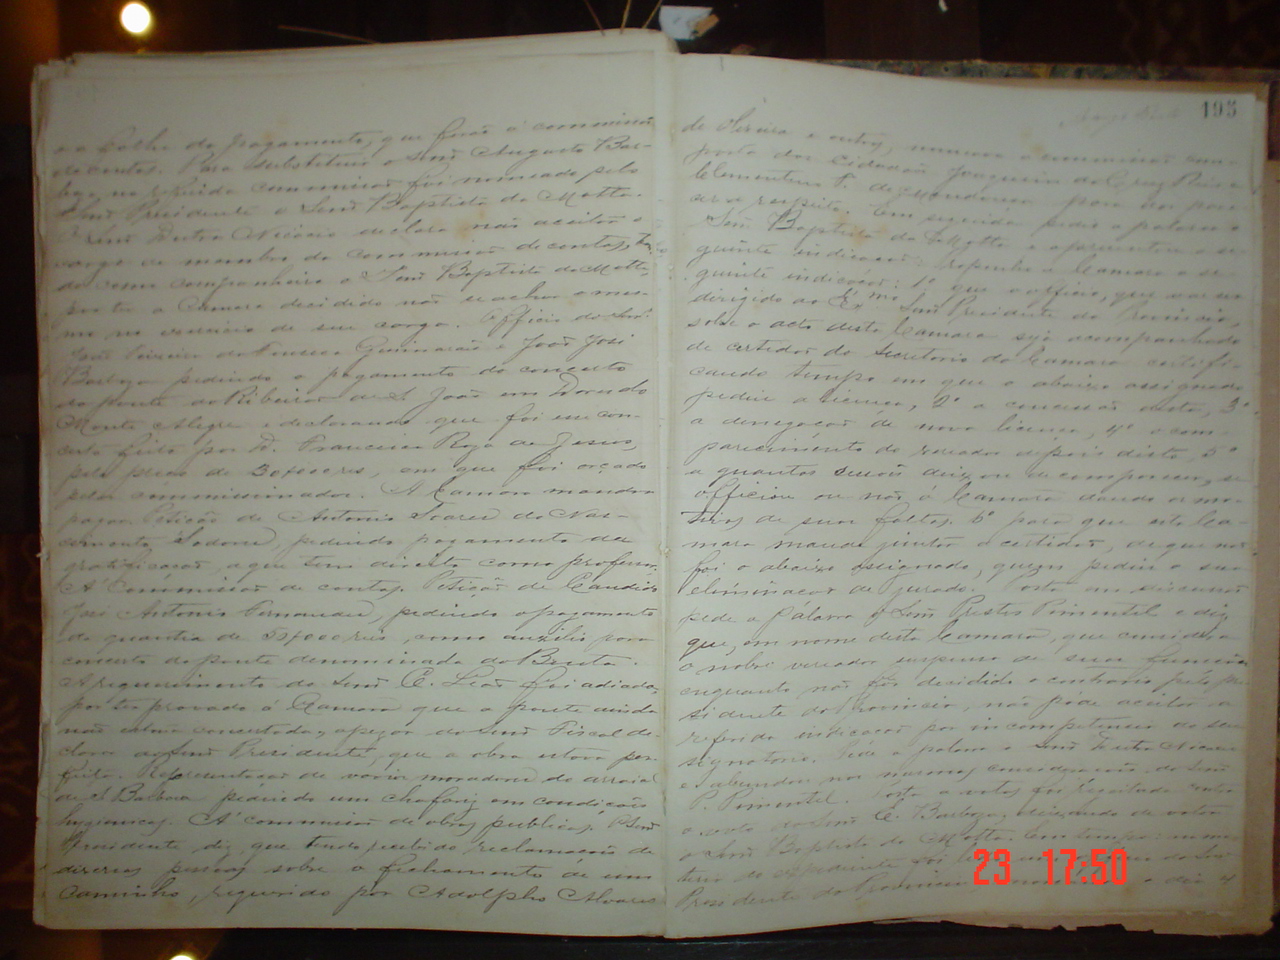 e a folha de pagamento, que foram á commissão
de contas. Para substituir o Senr Augusto Bar-
boza na referida commissão foi nomeado pelo
Senr Presidente o Senr Baptista da Motta.
O Senr Dutra Nicacio declara não aceitar o
cargo de membro da commissão de contas, ten
do como companheiro o Senr Baptista da Motta,
por ter a Camara decidido não se achar o mes-
mo no exercicio de seu cargo. Officio do Senr
José Teixeira da Fonseca Guimarães e João José
Barboza pedindo o pagamento do concerto
da ponte do Ribeirão de S. João em
Monte Alegre e declarando que foi esse con-
certo feito por D. Francisca Roza de Jesus,
pelo preço de 30$000 reis, em que foi orçado
pelo commissionado. A Camara mandou
pagar. Petição de Antonio Soares do Nas-
cimento, pedindo pagamento da
gratificação, a que tem direito como professor.
A' Commissão de contas. Petição de Candido
José Antonio Fernandes, pedindo o pagamento
da quantia de reis, como auxilio para
concerto da ponte denominada do Bruta.
A requerimento do Senr C. Leão foi adiada,
por ter provado á Camara que a ponte ainda
não estava concertada, apezar do Senr Fiscal de-
clarar ao Senr Presidente, que a obra estava per-
feita. Representação de varios moradores do arraial
de S. Barbara pedindo um chafariz em condições
hygienicas. A' commissão de obras publicas. O Senr
Presidente diz, que tendo recebido reclamações de
diversas pessoas sobre o fechamento de um
Caminho, requerido por Adolpho Alvares
195
de Oliveira e outros, nomeava a commissão com-
posta dos cidadãos Joaquim da Cruz Reis e
Clementino P. de Mendonça para dar pare-
cer a respeito. Em seguida pedio a palavra o
Senr Baptista da Motta e apresentou a se-
guinte indicação: Proponho a Camara a se-
guinte indicação: 1º que o officio, que vai ser
dirigido ao Ex.mo Senr Presidente da Provincia,
sobre o acto desta Camara seja acompanhado
de certidão do Secretario da Camara certifi-
cando tempo em que o abaixo assignado
pedira a licença, 2º a concessão desta, 3º
a denegação de nova licença, 4º o com-
parecimento do vereador depois disto, 5º
a quantas sessões deixou de comparecer, se
officiou ou não á Camara dando os mo-
tivos de suas faltas. 6º para que esta Ca-
mara mande juntar a certidão, de que não
foi o abaixo assignado, quem pediu a sua
eliminação de jurado. Posta em discussão
pede a palavra o Senr Prestes Pimentel e diz
que, em nome desta Camara, que considera
o nobre vereador suspenso de suas funcções
enquanto não for decidido o contrario pelo Pre
sidente da Provincia, não póde aceitar a
referida indicação por incompetencia do seu
signatario. Pede a palavra o Senr Dutra Nicacio
e abunda nas mesmas considerações do Senr
P. Pimentel. Posta a votos foi regeitada contra
o voto do Senr C. Barboza, deixando de votar
o Senr Baptista da Motta. Em tempo: no mo
do expediente foi
Presidente da Provincia dia 4
23 17:50